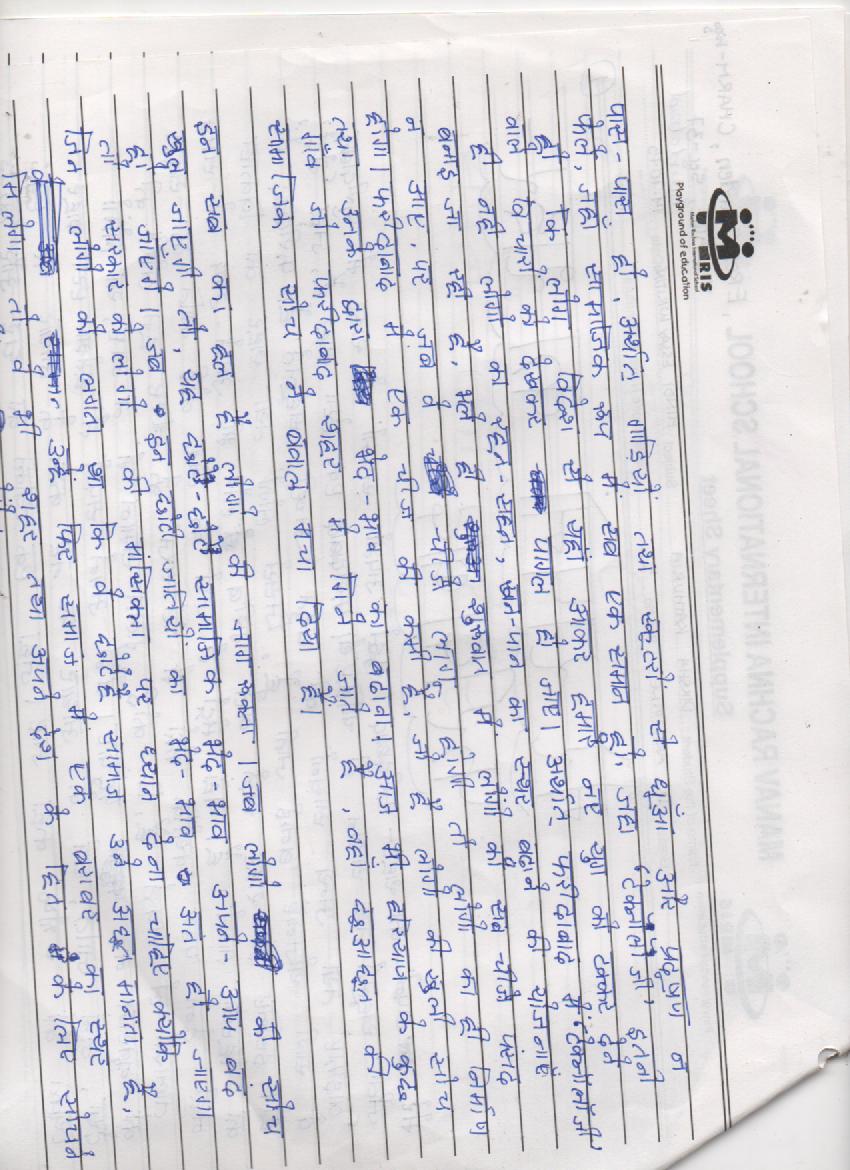 MRIS
Playground of education
पास-पास हो, अर्थात गाड़ियों तथा स्कूटरों से धूँआ और प्रदूषण न
फैले, जहाँ सामाजिक रूप में सब एक समान हो, जहाँ 'टेक्नोलोजी' इतनी
हो कि लोग विदेश से यहाँ आकर हमारे नए युग की टक्कर देने
वाले विचारों को देखकर पागल हो जाए। अर्थात फरीदाबाद में 'टेक्नोलोजी'
ही नहीं लोगों का रहन-सहन, खान-पान का स्तर बढ़ाने की योजनाएं
बनाई जा रही है, भले ही शुरुवात में लोगों को सब चीजे पसंद
न आए, पर जब वे चीजे लागू होंगी तो लोगों का ही निर्माण
होगा। फरीदाबाद में एक चीज की कमी है, जो है लोगों की खुली सोच
तथा उनके द्वारा भेद-भाव को बढ़ाना आज भी हरियाणा के कुछ
गाँव जो फरीदाबाद शहर में गिने जाते है, वहाँ छुआछूत की
सामाजिक सोच ने बवाल मचा दिया है।
इन सब का हल है लोगों की जागरूकता। जब लोगों की सोच
खुल जाएगी तो, यह छोटे-छोटे सामाजिक भेद-भाव अपने-आप बंद
हो जाएगे। जब इन छोटी जातियों का भेद-भाव अंत हो जाएगा
तो सरकार को लोगों की मांसिकता पर ध्यान देना चाहिए क्योंकि
जिन लोगों को लगता था कि वे छोटे है समाज उन्हें अछूत मानता है,
उन्हें फिर समाज में एक बराबर का स्तर
मिलेगा तो वे भी शहर तथा अपने देश के हित के लिए सोचेंगे